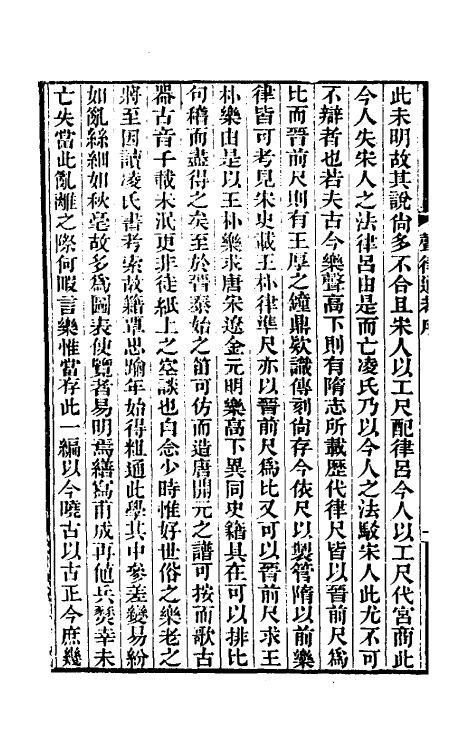 聲律通考序
此未明故其說尙多不合且宋人以工尺配律呂今人以工尺代宮商此
今人失宋人之法律呂由是而亡凌氏乃以今人之法駁宋人此尤不可
不辯者也若夫古今樂聲高下則有隋志所載歷代律尺皆以晉前尺爲
比而晉前尺則有王厚之鐘鼎欵識傳刻尙存今依尺以製管隋以前樂
律皆可考見宋史載王朴律準尺亦以晉前尺爲比又可以晉前尺求王
朴樂由是以王朴樂求唐宋遼金元明樂高下異同史籍具在可以排比
句稽而盡得之矣至於晉泰始之笛可仿而造唐開元之譜可按而歌古
器古音千載未泯更非徒紙上之空談也自念少時惟好世俗之樂老之
將至因讀凌氏書考索故籍覃思踰年始得粗通此學其中參差變易紛
如亂絲細如秋毫故多爲圖表使覽者易明焉繕寫甫成再値兵燹幸未
亡失當此亂離之際何暇言樂惟當存此一編以今曉古以古正今庶幾